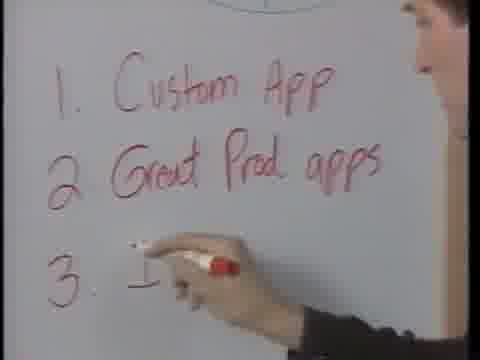 1. Custom App
2 Great Prod apps
3. I